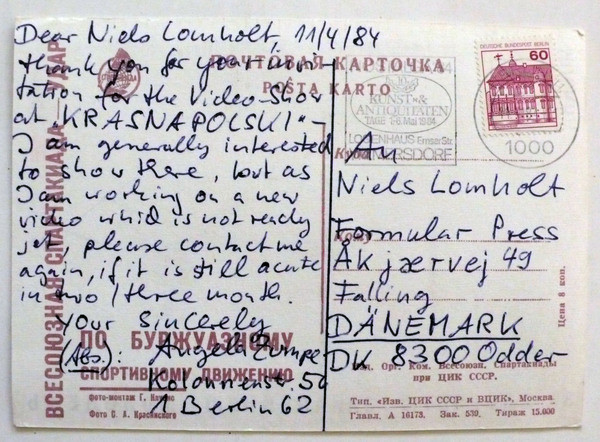 Dear Niels Lomholt, 11/4/84
thank you for your invi-
tation for the Video-Show
at "KRASNAPOLSKI" –
I am generally interested
to show there, but as
I am working on a new
video which is not ready
jet, please contact me
again, if it is still acute
in two/three month.
Your Sincerely
(Abs.): Angela Zumpe
Kolonnenstr. 50
1 Berlin 62
ПОЧТОВАЯ КАРТОЧКА
POŜTA KARTO
ВСЕСОЮЗНАЯ СПАРТАКИАДА — УДАР
ПО БУРЖУАЗНОМУ
СПОРТИВНОМУ ДВИЖЕНИЮ
фото-монтаж Г.
Фото С. А. Красинского
DEUTSCHE BUNDESPOST BERLIN
60
KUNST-&
ANTIQUITÄTEN
TAGE 1984
LOGENHAUS-Emser Str.
WILMERSDORF
1000
Куда
An
Niels Lomholt
Кому
Formular Press
Åkjærvej 49
Falling
DÄNEMARK
DK 8300 Odder
Цена 8 коп.
Изд. Орг. Ком. Всесоюзн. Спартакиады
при ЦИК СССР.
Тип. «Изв. ЦИК СССР и ВЦИК», Москва
Главл. А 16173. Зак. 530. Тираж 15.000